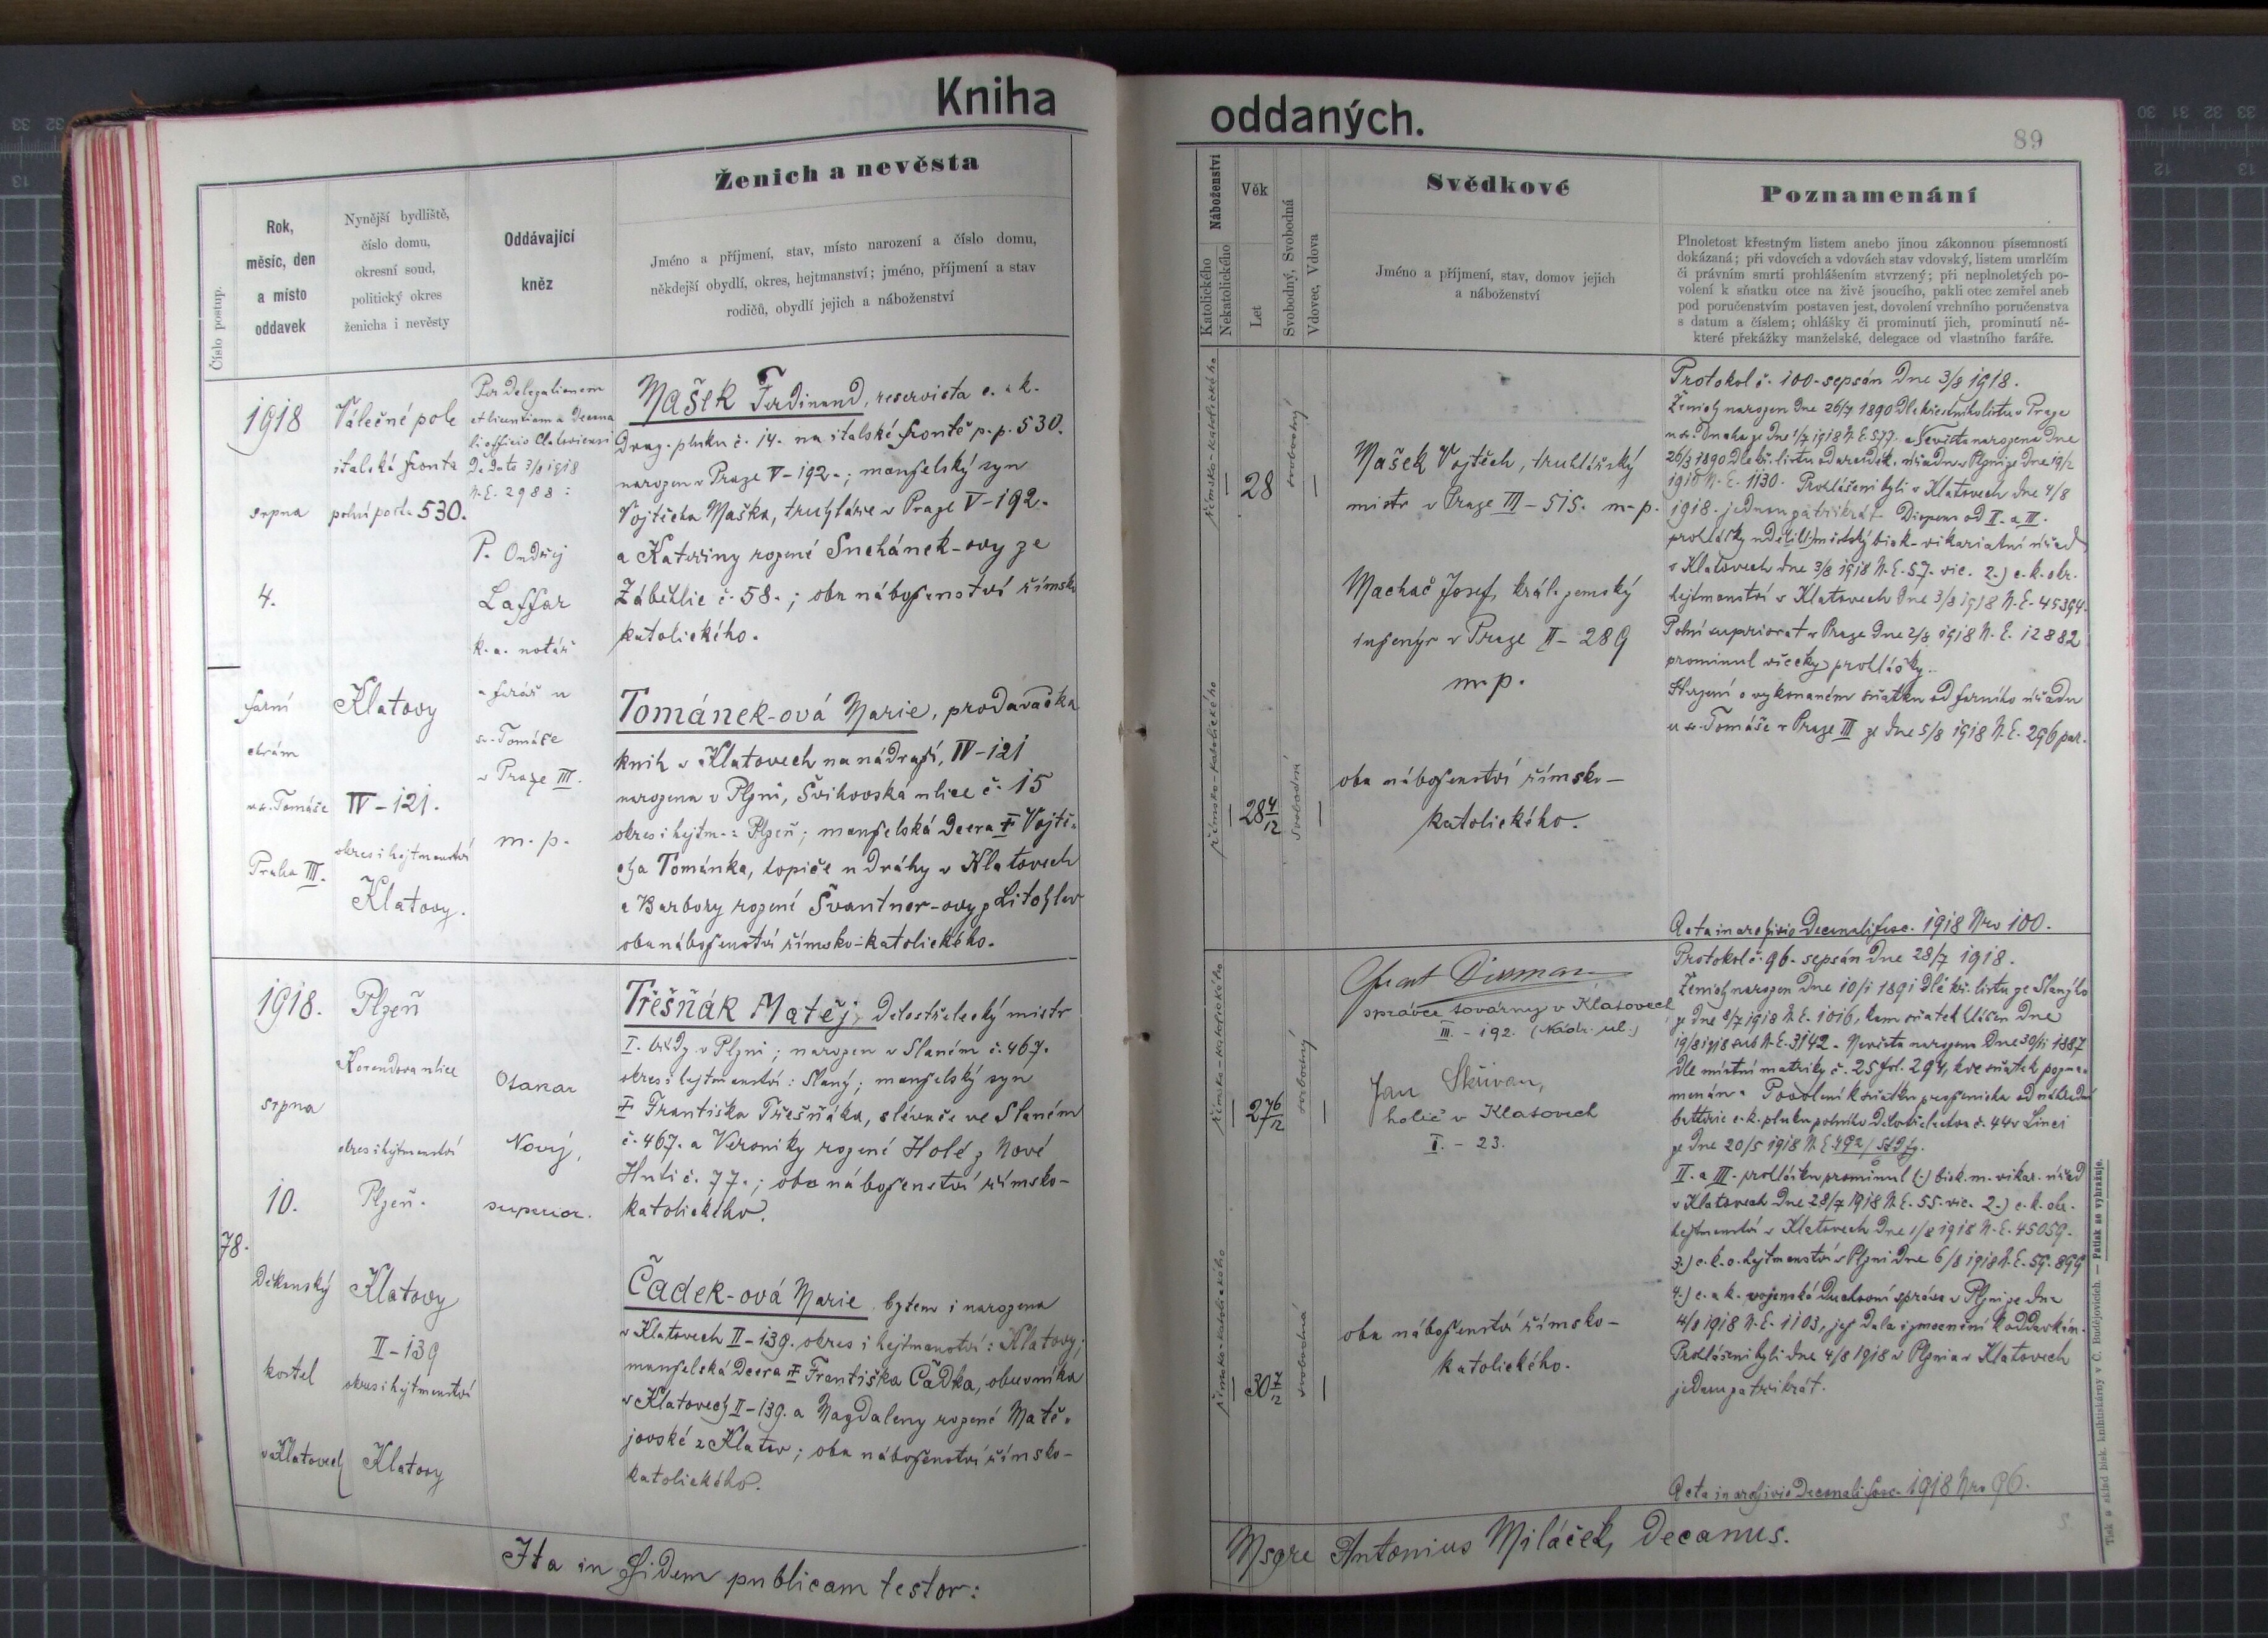 Kniha
oddaných.
89
Číslo postup.
Rok,
měsíc, den
a místo
oddavek
Nynější bydliště,
číslo domu,
okresní soud,
politický okres
ženicha i nevěsty
Oddávající
kněz
Ženich a nevěsta
Jméno a příjmení, stav, místo narození a číslo domu,
někdejší obydlí, okres, hejtmanství; jméno, příjmení a stav
rodičů, obydlí jejich a náboženství
1918
srpna
4.
farní
chrám
u sv. Tomáše
Praha III.
Válečné pole
italská fronta
polní pošta 530.
Klatovy
IV-121.
okres i hejtmanství
Klatovy.
Per delegationem
et licentiam a Decana
li officio Clatoviensi
De dato 3/8 1918
N.E. 2988:
P. Ondřej
Laffar
k. a. notář
a farář u
sv. Tomáše
v Praze III.
m. p.
Mašek Ferdinand, reservista c. a k.
Drag. pluku č. 14. na italské frontě p. p. 530.
narozen v Praze V-192.; manželský syn
Vojtěcha Maška, truhláře v Praze V-192.
a Kateřiny rozené Suchánek-ovy ze
Záběhlic č. 58.; oba náboženství římsko
katolického.
Tománek-ová Marie, prodavačka
knih v Klatovech na nádraží, IV-121
narozena v Plzni, Švihovská ulice č. 15
okres i hejtm.: Plzeň; manželská dcera ‡ Vojtě-
cha Tománka, topiče u dráhy v Klatovech
a Barbory rozené Švantner-ovy z Litohlav
oba náboženství římsko-katolického.
78.
1918.
srpna
10.
Děkanský
kostel
v Klatovech
Plzeň
Korandova ulice
okres i hejtmanství
Plzeň.
Klatovy
II-139
okres i hejtmanství
Klatovy
Otakar
Nový,
superior.
Třešňák Matěj, Dělostřelecký mistr
I. třídy v Plzni; narozen v Slaném č. 467.
okres i hejtmanství: Slaný; manželský syn
‡ Františka Třešňáka, slévače ve Slaném
č. 467. a Veroniky rozené Holé z Nové
Huti č. 77.; oba náboženství římsko-
katolického.
Čadek-ová Marie, bytem i narozena
v Klatovech II-139. okres i hejtmanství: Klatovy;
manželská dcera ‡ Františka Čadka, obuvníka
v Klatovech II-139. a Magdaleny rozené Matě-
jovské z Klatov; oba náboženství římsko-
katolického.
Ita in fidem publicam testor:
Náboženství
Katolického
Nekatolického
Věk
Let
Svobodný, Svobodná
Vdovec, Vdova
Svědkové
Jméno a příjmení, stav, domov jejich
a náboženství
Poznamenání
Plnoletost křestným listem anebo jinou zákonnou písemností
dokázaná; při vdovcích a vdovách stav vdovský, listem umrlčím
či právním smrti prohlášením stvrzený; při neplnoletých po-
volení k sňatku otce na živě jsoucího, pakli otec zemřel aneb
pod poručenstvím postaven jest, dovolení vrchního poručenstva
s datum a číslem; ohlášky či prominutí jich, prominutí ně-
které překážky manželské, delegace od vlastního faráře.
římsko-katolického
28
svobodný
římsko-katolického
28 4/12
svobodná
Mašek Vojtěch, truhlářský
mistr v Praze III-515. m. p.
Machač Josef, král. zemský
inženýr v Praze II-289
m. p.
oba náboženství římsko-
katolického.
Protokol č. 100. sepsán dne 3/8 1918.
Ženich narozen dne 26/7 1890 dle křestního listu v Praze
u sv. Ducha ze dne 1/7 1918 N.E. 577. a Nevěsta narozena dne
26/3 1890 dle kř. listu od arciděk. úřadu v Plzni ze dne 19/2
1918 N.E. 1130. Prohlášeni byli v Klatovech dne 4/8
1918. jednou za třikrát. Dispens od II. a III.
prohlášky udělil 1.) místský bisk. vikariátní úřad
v Klatovech dne 3/8 1918 N.E. 57. vic. 2.) c. k. okr.
hejtmanství v Klatovech dne 3/8 1918 N.E. 45394.
Polní superiorat v Praze dne 2/8 1918 N.E. 12882
prominul všecky prohlášky.
Stvrzení o vykonaném sňatku od farního úřadu
u sv. Tomáše v Praze III ze dne 5/8 1918 N.E. 296 par.
Acta in archivio Decanali fasc. 1918 Nro 100.
římsko-katolického
27 6/12
svobodný
římsko-katolického
30 7/12
svobodná
správce továrny v Klatovech
III. - 192. (Nádr. ul.)
Jan Skřivan,
holič v Klatovech
I. - 23.
oba náboženství římsko-
katolického.
Protokol č. 96. sepsán dne 28/7 1918.
Ženich narozen dne 10/1 1891 dle kř. listu ze Slaného
ze dne 8/7 1918 N.E. 1016, kam sňatek hlášen dne
19/8 1918 sub N.E. 3142. Nevěsta narozena dne 30/11 1887
dle místní matriky č. 25 fol. 294, kde sňatek pozna-
menán. Povolení k sňatku pro ženicha od náhradní
batterie c. k. pluku polního dělostřelectva č. 44 v Linci
ze dne 20/5 1918 N.E. 492/
II. a III. prohlášku prominul 1.) bisk. m. vikar. úřad
v Klatovech dne 28/7 1918 N.E. 55. vic. 2.) c. k. okr.
hejtmanství v Klatovech dne 1/8 1918 N.E. 45059.
3.) c. k. o. hejtmanství v Plzni dne 6/8 1918 N.E. 59.899
4.) c. a k. vojenská Duchovní správa v Plzni ze dne
4/8 1918 N.E. 1103, jež dala zmocnění k oddavkám.
Prohlášeni byli dne 4/8 1918 v Plzni a v Klatovech
jednou za třikrát.
Acta in archivio Decanali fasc. 1918 Nro 96.
Msgre Antonius Miláček, Decanus.
Tisk a sklad bisk. knihtiskárny v Č. Budějovicích. — Patisk se vyhražuje.